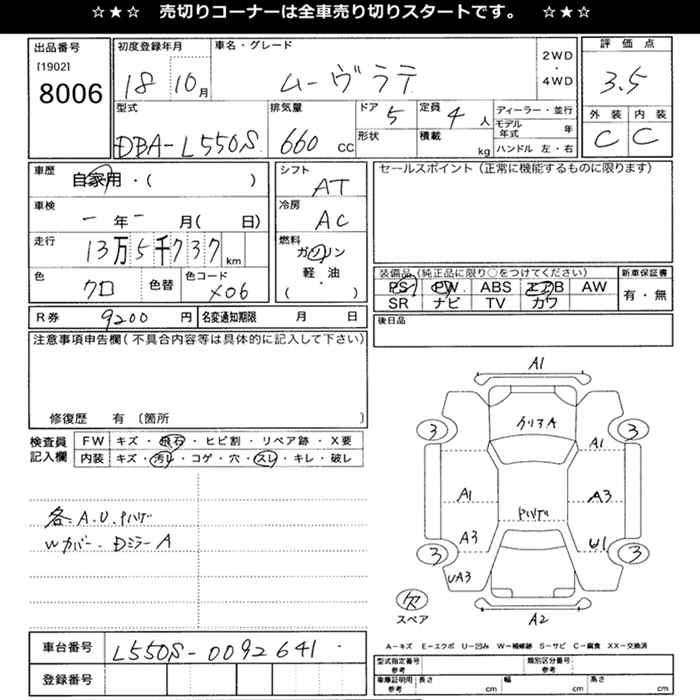 ☆★☆ 売切りコーナーは全車売り切りスタートです。 ☆★☆
出品番号
[1902]
8006
初度登録年月
18 10月
車名・グレード
ムーヴラテ
2WD
・
4WD
評価点
3.5
外装 内装
C C
型式
DBA-L550S
排気量
660 cc
ドア 5
形状
定員 4 人
積載 kg
ディーラー・並行
モデル年式 年
ハンドル 左・右
車歴
自家用・( )
車検
- 年 - 月( 日)
走行
13万5千737km
色
クロ
色替
色コード
X06
シフト
AT
冷房
AC
燃料
ガソリン
軽・油
( )
セールスポイント(正常に機能するものに限ります)
装備品(純正品に限り○をつけてください)
PS PW ABS エアB AW
SR ナビ TV カワ
新車保証書
有・無
R券 9200 円
名変通知期限 月 日
後日品
注意事項申告欄(不具合内容等は具体的に記入して下さい)
修復歴 有〔箇所 〕
検査員
記入欄
FW キズ・飛石・ヒビ割・リペア跡・X要
内装 キズ・汚レ・コゲ・穴・スレ・キレ・破レ
各.A.U.ハゲ
Wカバー.DミラーA
A1
クリアA
3 3
A1
A1
A3
A3
U1
3 3
UA3
A2
欠
スペア
A−キズ E−エクボ U−凹み W−補修跡 S−サビ C−腐食 XX−交換済
車台番号 L550S-0092641
登録番号
型式指定番号
参考
類別区分番号
参考
車庫証明用
参考
長さ cm 幅 cm 高さ cm